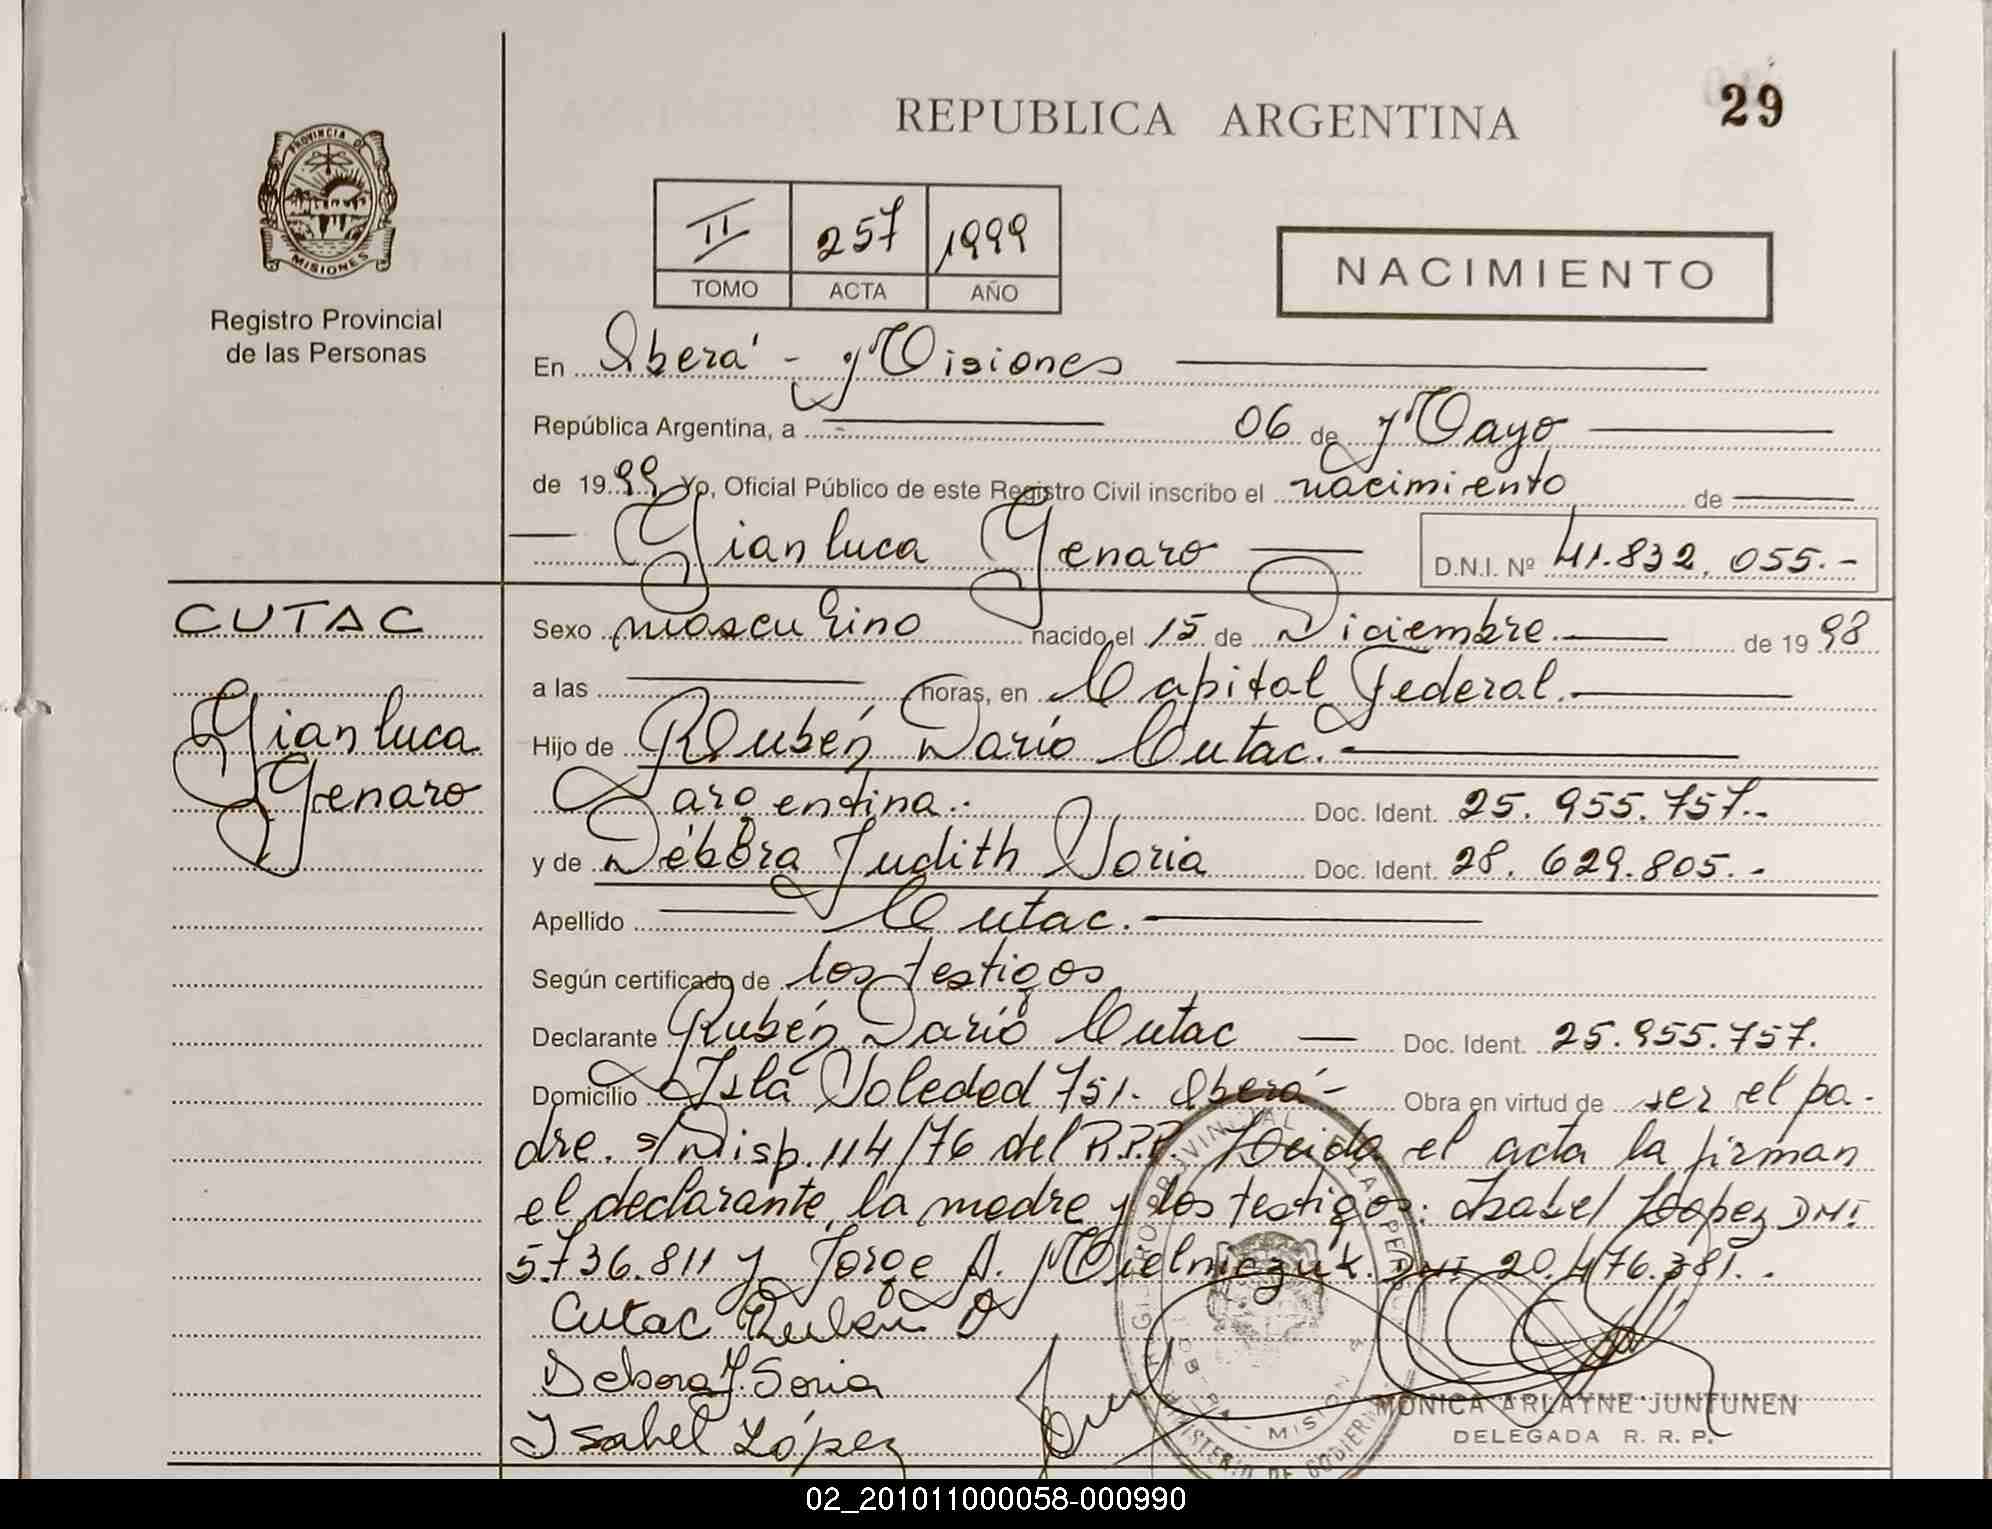 REPUBLICA ARGENTINA
29
PROVINCIA DE
MISIONES
Registro Provincial
de las Personas
II 257 1999
TOMO ACTA AÑO
NACIMIENTO
En Oberá - Misiones
República Argentina, a 06 de Mayo
de 1999 Yo, Oficial Público de este Registro Civil inscribo el nacimiento de
Gianluca Genaro D.N.I. Nº 41.832.055.-
CUTAC
Gianluca
Genaro
Sexo masculino nacido el 15 de Diciembre. de 1998
a las horas, en Capital Federal.
Hijo de Rubén Darío Cutac.
argentina.- Doc. Ident. 25.955.757.-
y de Débora Judith Soria Doc. Ident. 28.629.805.-
Apellido Cutac.
Según certificado de los testigos
Declarante Rubén Darío Cutac Doc. Ident. 25.955.757.
Domicilio Isla Soledad 751. Oberá- Obra en virtud de ser el pa-
dre. s/Disp. 114/76 del R.P.P. Leida el acta la firman
el declarante, la madre y los testigos: Isabel López DNI
5.736.811 y Jorge A. Mielniczuk. DNI 20.476.381.-
Cutac Rubén D
Debora J. Soria
Isabel López
MONICA ARLAYNE JUNTUNEN
DELEGADA R. R. P.
MINISTERIO DE GOBIERNO
02_201011000058-000990